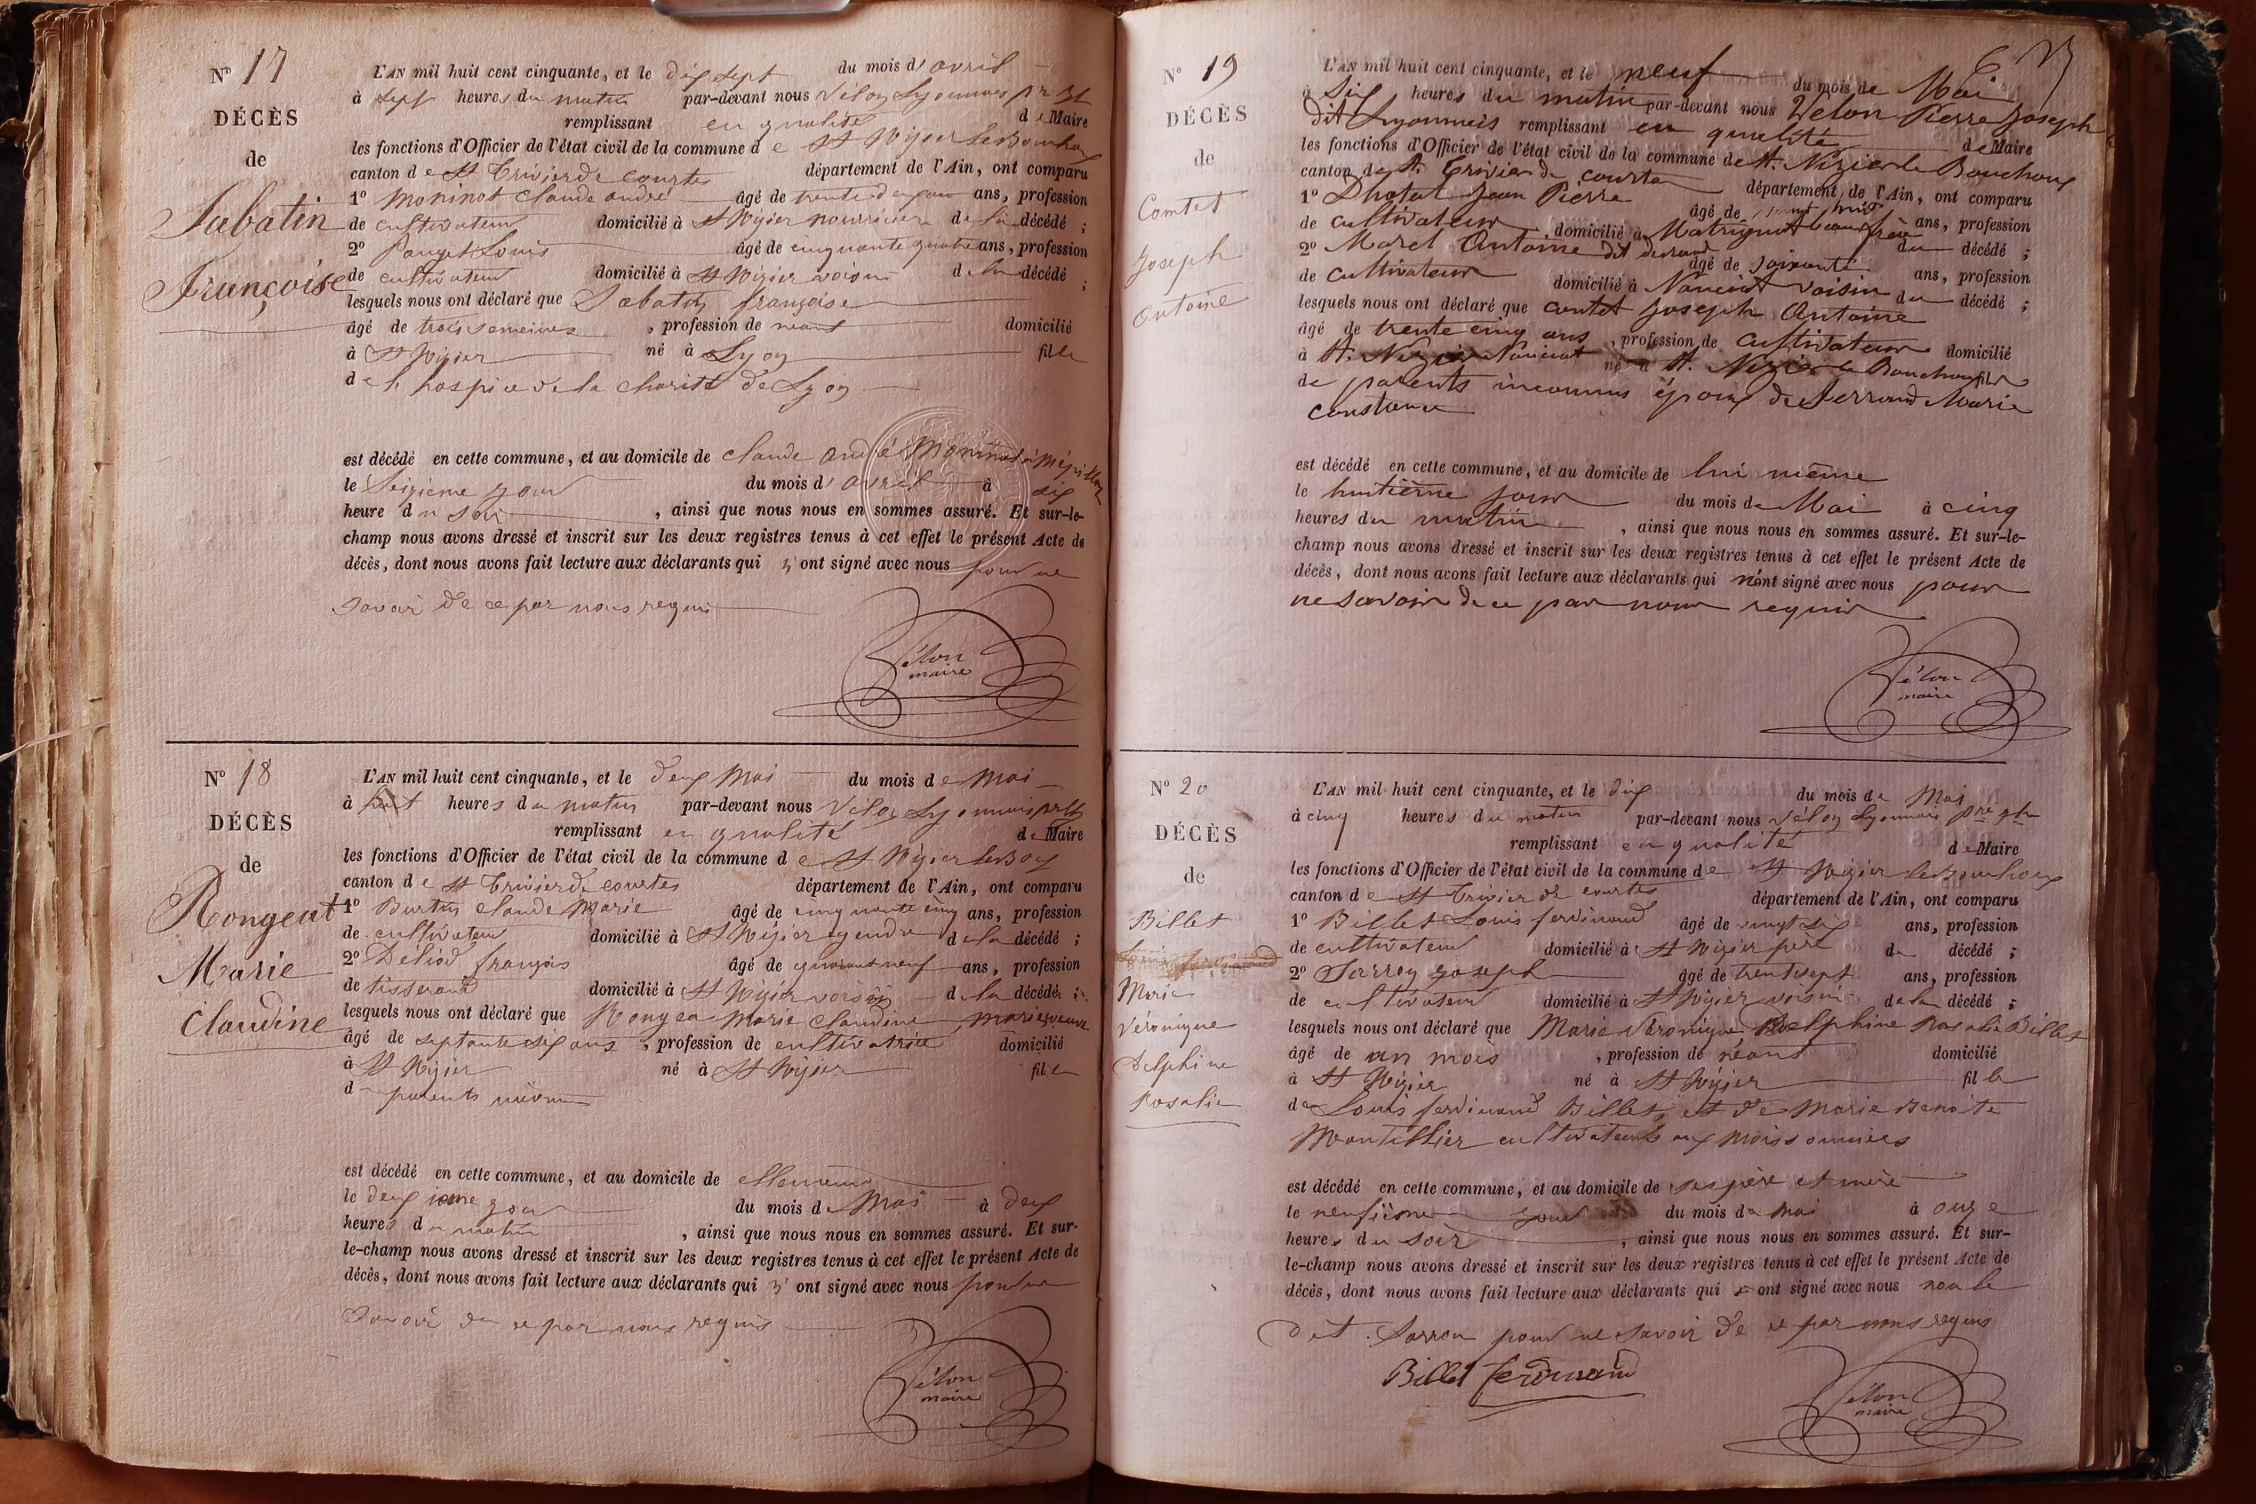 Nº 17
DÉCÈS
de
Sabatin
Françoise
L'AN mil huit cent cinquante, et le dix sept du mois d'avril
à sept heures du matin par-devant nous Vélon Lyonnais
remplissant en qualité de Maire
les fonctions d'Officier de l'état civil de la commune de St Nizier le Bouchoux
canton de St Trivier de Courtes département de l'Ain, ont comparu
1º Moninot Claude andré âgé de trente deux ans, profession
de cultivateur domicilié à St Nizier nourricier de la décédé ;
2º Pauget Louis âgé de cinquante quatre ans, profession
de cultivateur domicilié à St Nizier voisin de la décédé ;
lesquels nous ont déclaré que Sabatin françoise
âgé de trois semaines , profession de néant domicilié
à St Nizier né à Lyon fille
de l'hospice de la charité de Lyon
est décédé en cette commune, et au domicile de Claude André Moninot
le Seizième jour du mois d'avril à dix
heure du soir , ainsi que nous nous en sommes assuré. Et sur-le-
champ nous avons dressé et inscrit sur les deux registres tenus à cet effet le présent Acte de
décès, dont nous avons fait lecture aux déclarants qui n'ont signé avec nous pour ne
savoir de ce par nous requis
Vélon
maire
Nº 18
DÉCÈS
de
Rongeat
Marie
Claudine
L'AN mil huit cent cinquante, et le deux Mai du mois de Mai
à huit heures du matin par-devant nous Vélon Lyonnais
remplissant en qualité de Maire
les fonctions d'Officier de l'état civil de la commune de St Nizier le Boux
canton de St Trivier de courtes département de l'Ain, ont comparu
1º Burtin Claude Marie âgé de cinquante cinq ans, profession
de cultivateur domicilié à St Nizier gendre de la décédé ;
2º françois âgé de quarante neuf ans, profession
de tisserand domicilié à St Nizier voisin de la décédé ;
lesquels nous ont déclaré que Rongea Marie Claudine veuve
âgé de septante six ans , profession de cultivatrice domicilié
à St Nizier né à St Nizier fille
de parents
est décédé en cette commune, et au domicile de elle même
le deuxieme jour du mois de Mai à deux
heures du matin , ainsi que nous nous en sommes assuré. Et sur-
le-champ nous avons dressé et inscrit sur les deux registres tenus à cet effet le présent Acte de
décès, dont nous avons fait lecture aux déclarants qui n'ont signé avec nous pour ne
savoir de ce par nous requis
Vélon
maire
Nº 19
DÉCÈS
de
Comtet
Joseph
Antoine
L'AN mil huit cent cinquante, et le neuf du mois de Mai
à Six heures du matin par-devant nous Velon Pierre Joseph
dit Lyonnais remplissant en qualité de Maire
les fonctions d'Officier de l'état civil de la commune de St. Nizier le Bouchoux
canton de St. Trivier de courtes département de l'Ain, ont comparu
1º Jean Pierre âgé de ans, profession
de cultivateur domicilié à beau frère du décédé ;
2º Morel Antoine dit âgé de soixante ans, profession
de cultivateur domicilié à voisin du décédé ;
lesquels nous ont déclaré que contet Joseph Antoine
âgé de trente cinq ans , profession de cultivateur domicilié
à St. Nizier né à St. Nizier le Bouchoux fils
de parents inconnus époux de Serrand Marie
constance
est décédé en cette commune, et au domicile de lui même
le huitième jour du mois de Mai à cinq
heures du matin , ainsi que nous nous en sommes assuré. Et sur-le-
champ nous avons dressé et inscrit sur les deux registres tenus à cet effet le présent Acte de
décès, dont nous avons fait lecture aux déclarants qui n'ont signé avec nous pour
ne savoir de ce par nous requis
Vélon
maire
Nº 20
DÉCÈS
de
Billet
Marie
Véronique
Delphine
Rosalie
L'AN mil huit cent cinquante, et le dix du mois de Mai
à cinq heures du matin par-devant nous Vélon Lyonnais
remplissant en qualité de Maire
les fonctions d'Officier de l'état civil de la commune de St Nizier le Bouchoux
canton de St Trivier de courtes département de l'Ain, ont comparu
1º Billet Louis ferdinand âgé de vingt six ans, profession
de cultivateur domicilié à St Nizier père du décédé ;
2º Sarron Joseph âgé de trente sept ans, profession
de cultivateur domicilié à St Nizier voisin de la décédé ;
lesquels nous ont déclaré que Marie Véronique Delphine Rosalie Billet
âgé de un mois , profession de néant domicilié
à St Nizier né à St Nizier fille
de Louis ferdinand Billet et de Marie Benoite
Montillier cultivateurs aux
est décédé en cette commune, et au domicile de ses père et mère
le neufième jour du mois de mai à onze
heures du soir , ainsi que nous nous en sommes assuré. Et sur-
le-champ nous avons dressé et inscrit sur les deux registres tenus à cet effet le présent Acte de
décès, dont nous avons fait lecture aux déclarants qui ont signé avec nous non le
dit Sarron pour ne savoir de ce par nous requis
Billet ferdinand
Vélon
maire